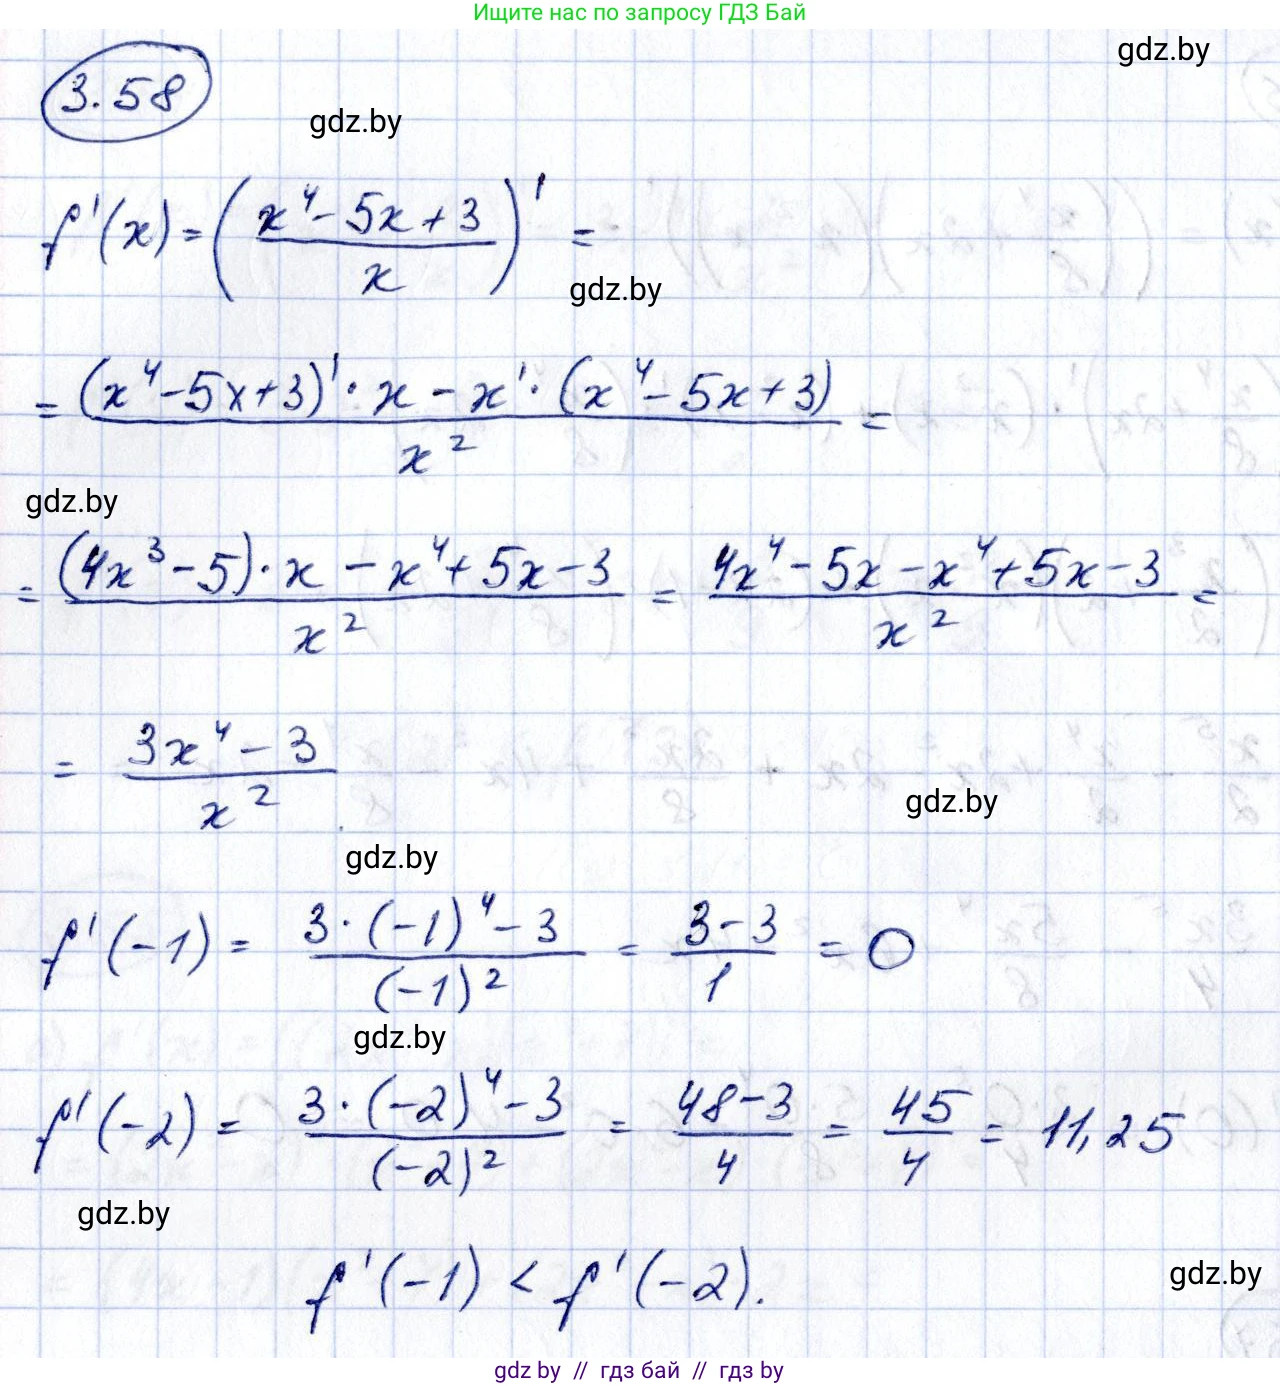 Ищите нас по запросу ГДЗ Бай
gdz.by
3.58
gdz.by
f'(x) = ((x⁴ - 5x + 3)/x)' =
gdz.by
= ((x⁴ - 5x + 3)' · x - x' · (x⁴ - 5x + 3))/x² =
gdz.by
= ((4x³ - 5) · x - x⁴ + 5x - 3)/x² = (4x⁴ - 5x - x⁴ + 5x - 3)/x² =
= (3x⁴ - 3)/x².
gdz.by
gdz.by
f'(-1) = (3 · (-1)⁴ - 3)/(-1)² = (3 - 3)/1 = 0
gdz.by
f'(-2) = (3 · (-2)⁴ - 3)/(-2)² = (48 - 3)/4 = 45/4 = 11,25
gdz.by
f'(-1) < f'(-2).
gdz.by
gdz by // гдз бай // гдз by